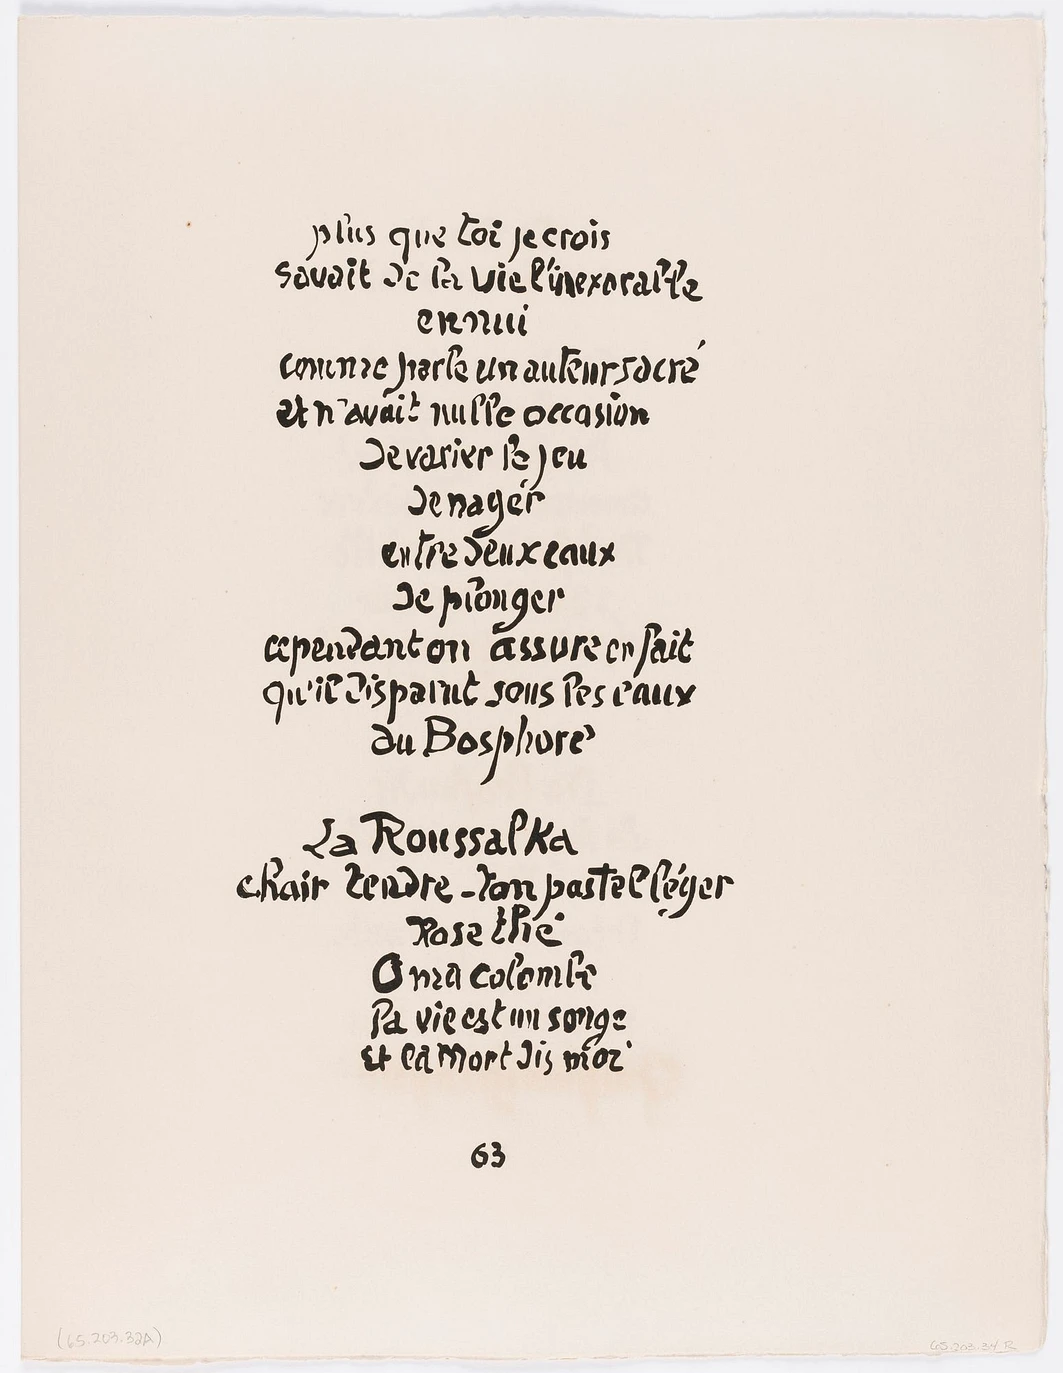 plus que toi je crois
savait de la vie l'inexorable
ennui
comme parle un auteur sacré
et n'avait nulle occasion
de varier le jeu
de nager
entre deux eaux
de plonger
cependant on assure en fait
qu'il disparut sous les eaux
du Bosphore
La Roussalka
chair tendre - ton pastel léger
Rose thé
O ma colombe
la vie est un songe
et la mort dis moi
63
(65.203.32A)
65.203.34 R